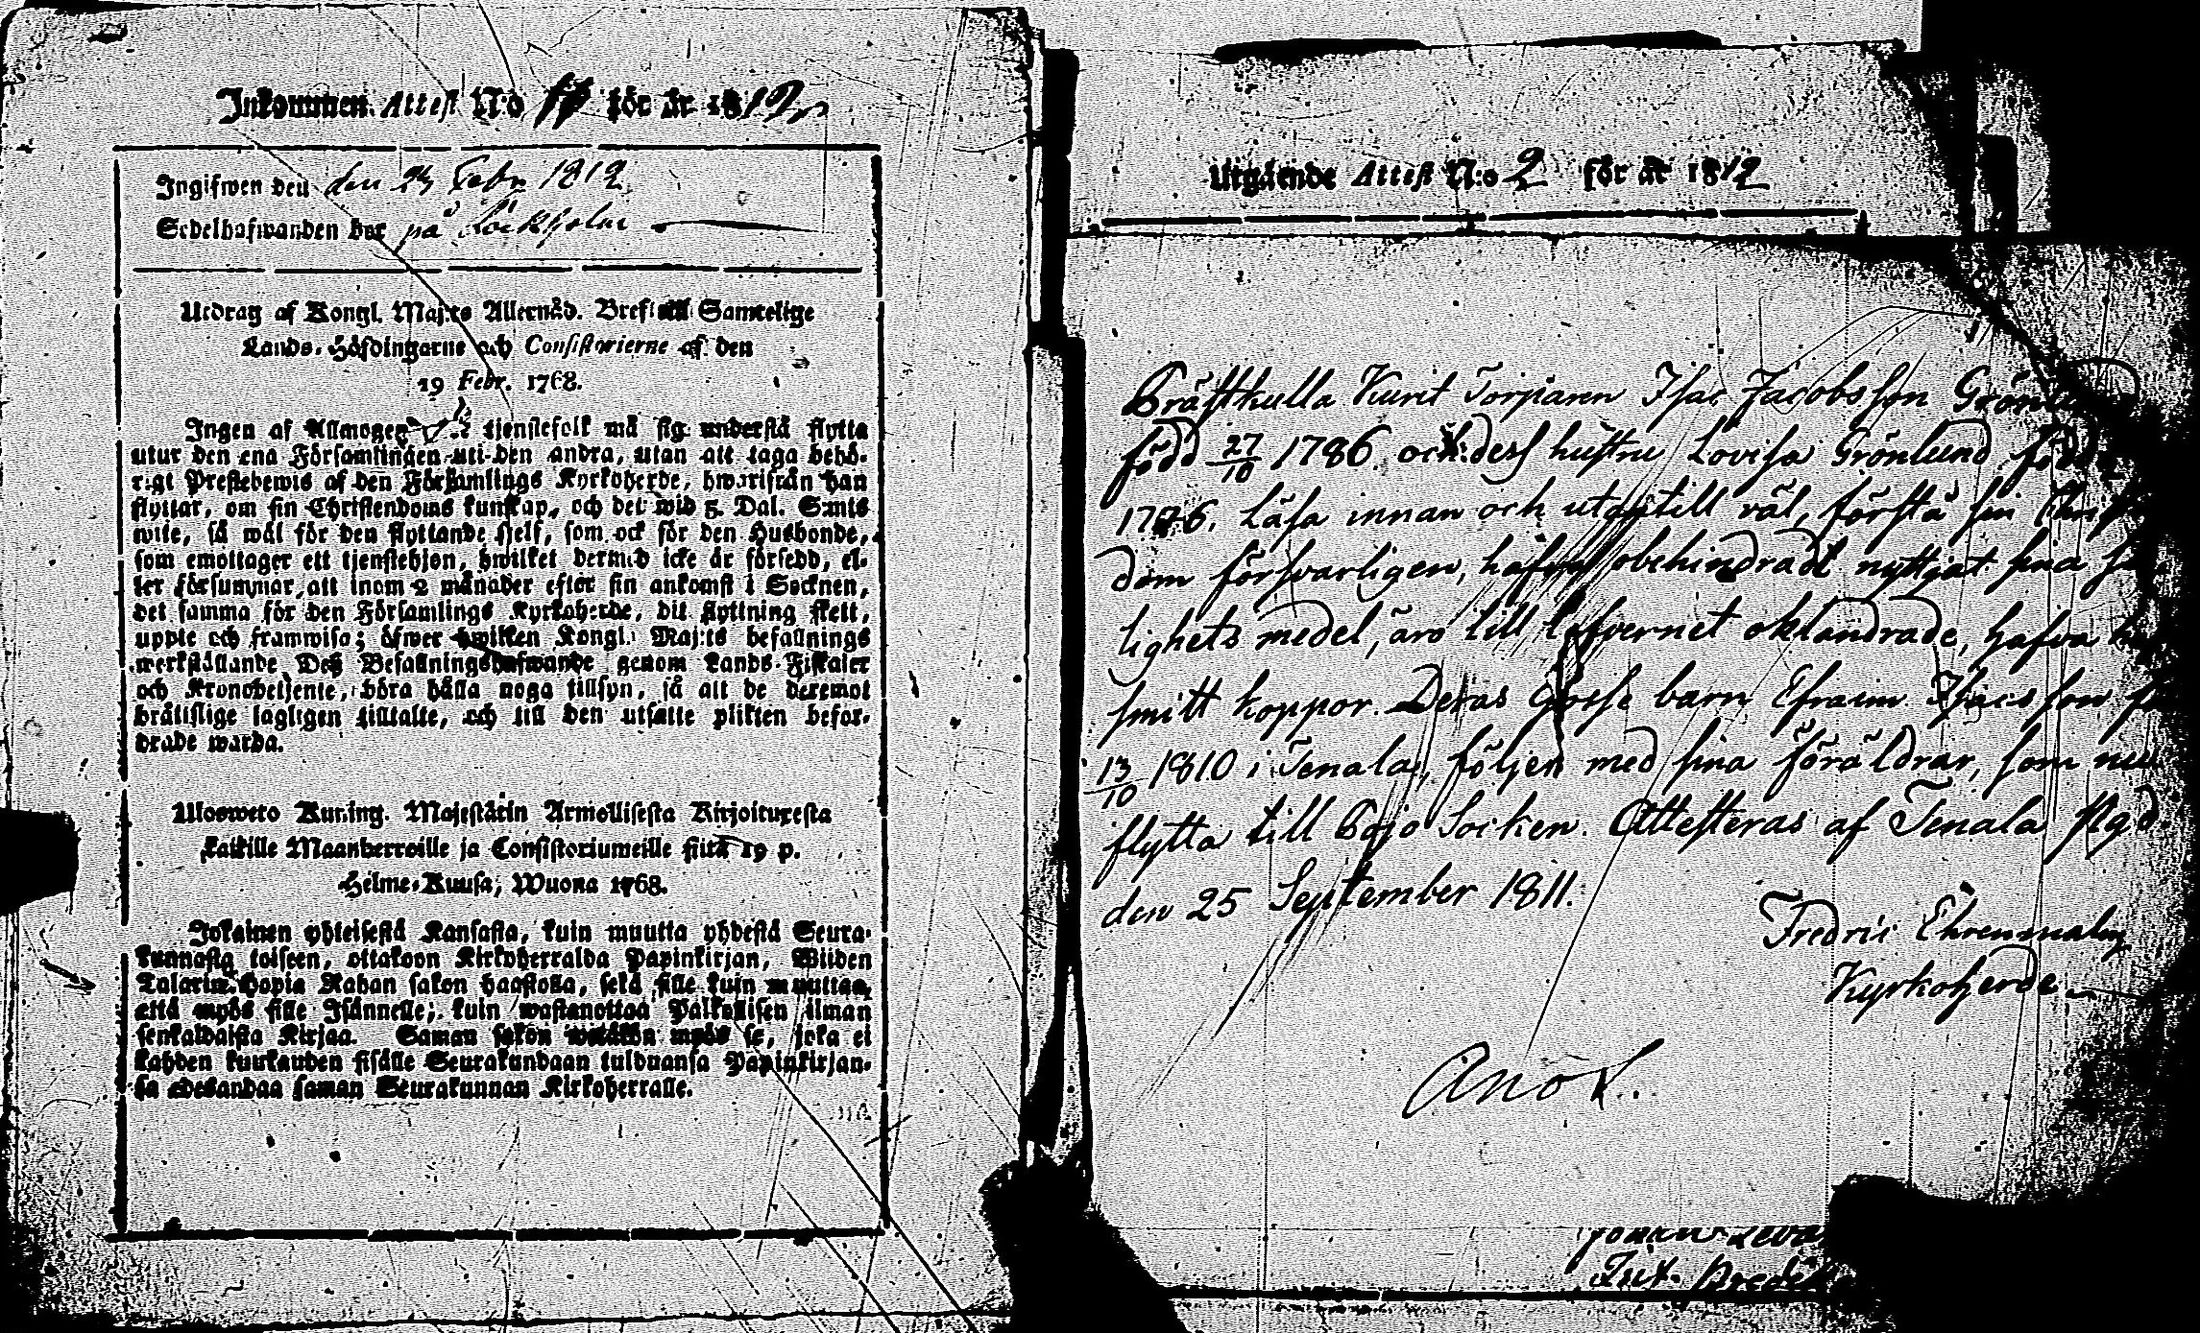 Inkommen Attest N:o för år 1812
Ingifwen den den 23 Febr 1812
Sedelhafwanden bor på
Utdrag af Kongl. Maj:ts Allernåd. Bref till Samtelige
Lands-Höfdingarne och Consistorierne af den
19 Febr. 1768.
Ingen af Allmogen tjenstefolk må sig understå flytta
utur den ena Församlingen uti den andra, utan att taga behö-
rigt Prestebewis af den Församlings Kyrkoherde, hwarifrån han
flyttar, om sin Christendoms kunskap, och det wid 5. Dal. S:mts
wite, så wäl för den flyttande sjelf, som ock för den Husbonde,
som emottager ett tjenstehjon, hwilket dermed icke är försedd, el-
ler försummar, att inom 2 månader efter sin ankomst i Socknen,
det samma för den Församlings Kyrkoherde, dit flyttning skett,
uppte och framwisa; öfwer hwilken Kongl. Maj:ts befallnings
werkställande Deß Befallningshafwande genom Lands-Fiskaler
och Kronobetjente, böra hålla noga tillsyn, så att de deremot
brottslige lagligen tilltalte, och till den utsatte plikten befor-
drade warda.
Ulosweto Kuning. Majestätin Armollisesta Kirjoituxesta
kaikille Maanherroille ja Consistoriumeille siitä 19 p.
Helme-Kuusa, Wuona 1768.
Jokainen yhteisestä Kansasta, kuin muutta yhdestä Seura-
kunnasta toiseen, ottakoon Kirkoherralda Papinkirjan, Wiiden
Talarin Hopia Rahan sakon haastolla, sekä sille kuin muuttaa,
että myös sille Isännelle, kuin wastanottaa Palkollisen ilman
senkaldaista Kirjaa. Saman sakon wetäkön myös se, joka ei
kahden kuukauden sisälle Seurakundaan tulduansa Papinkirjan-
sa edesandaa saman Seurakunnan Kirkoherralle.
Utgående Attest N:o 2 för år 1812
Prästkulla Kurit Torparen Isac Jacobsson
född 27/10 1786 och dess hustru Lovisa Grönlund född
1786. Läsa innan och utantill väl, förstå sin
dom försvarligen, hafva obehindradt nyttjat sina
lighets medel, äro till lefvernet oklandrade, hafva
smitt koppor. Deras Gosse barn Efraim Isacsson
13/10 1810 i Tenala, följer med sina föräldrar, som nu
flytta till Pojo Socken. Attesteras af Tenala Pgd.
den 25 September 1811.
Fredric Ehrenmalm
Kyrkoherde